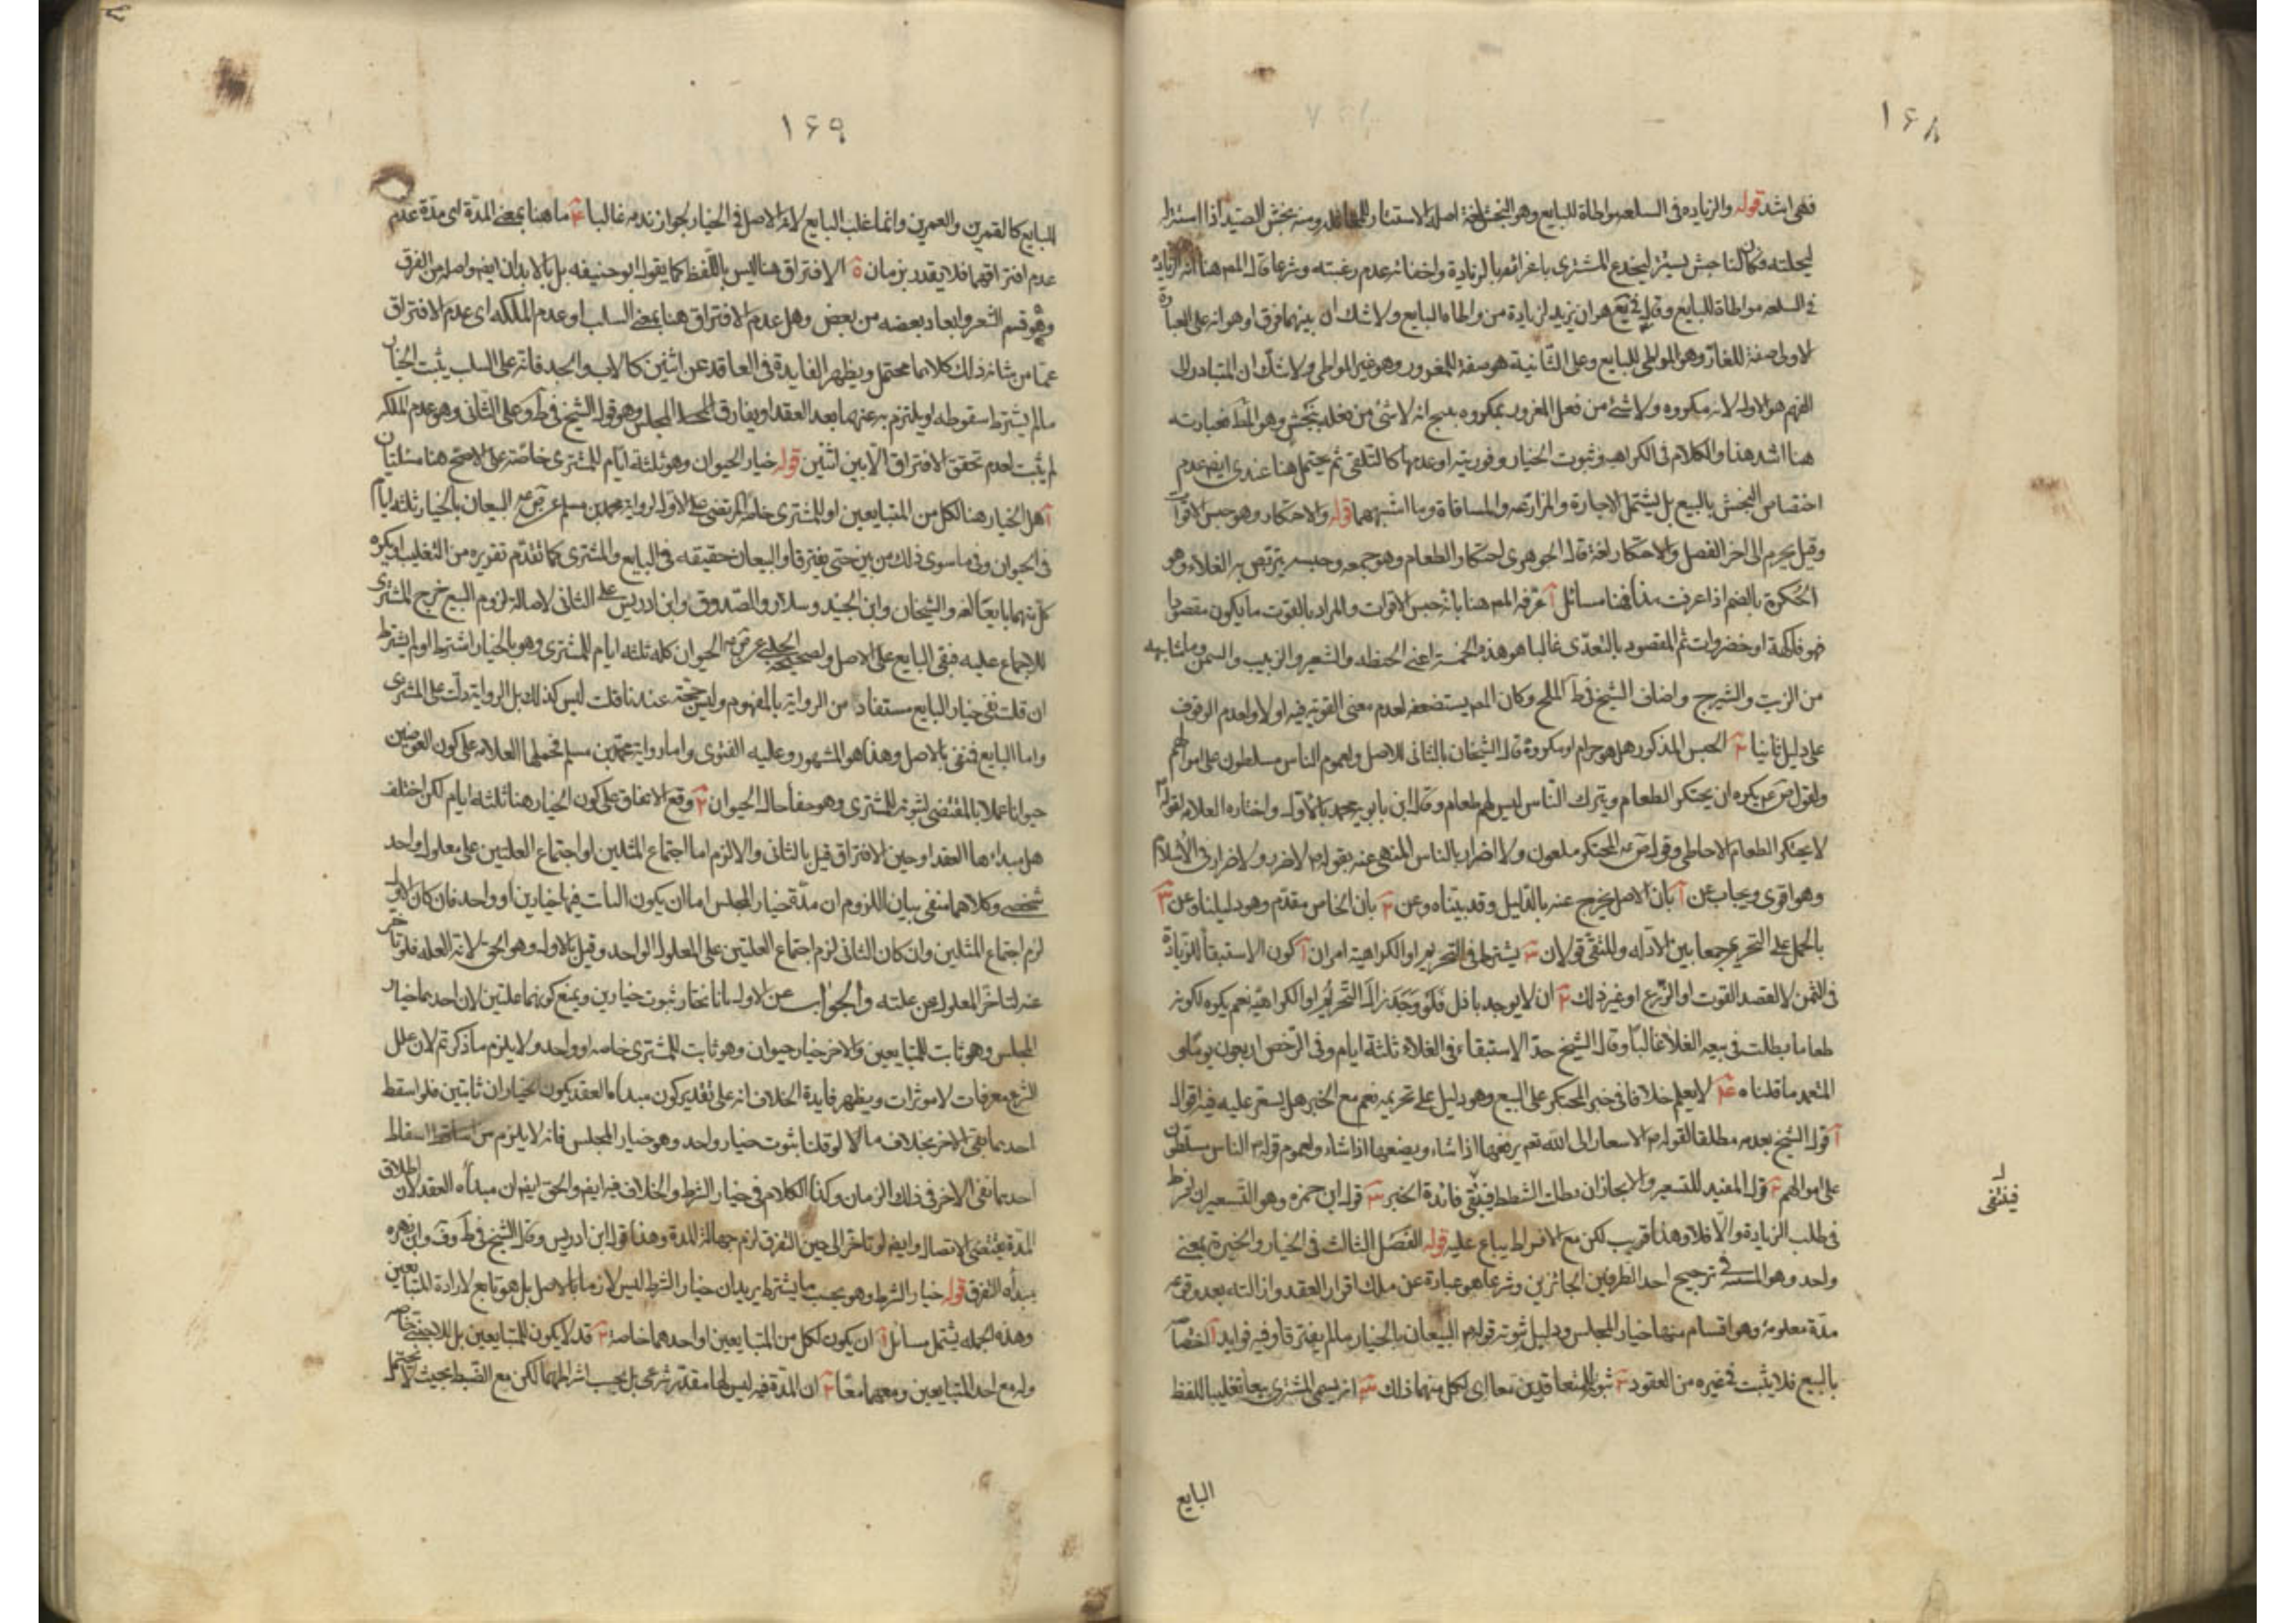 ١٦٨
فهى اشد قوله والزياده فى السلعه مواطاة للبايع وهو النجش لغة اصله الاستتار ومنه نجش الصيد اذا استتر
ليختله وكان الناجش يستتر ليخدع المشترى باغرائه بالزيادة واخفائه عدم رغبته وشرعا قال المص هنا انه الزيادة
فى السلعه مواطاة للبايع وقيل هو ان يزيد لزيادة من واطاه البايع ولا شك ان بينهما فرق اذ هو انه على العبارة
الاولى صفة للغار وهو المواطى للبايع وعلى الثانية هو صفة للمغرور وهو غير المواطى ولا شك ان المتبادر الى
الفهم هو الاول لانه مكروه ولا شئ من فعل المغرور بمكروه ينتج انه لا شئ من فعله بنجش وهو المط فعبارته
هنا اشد هذا والكلام فى الكراهية وثبوت الخيار وفوريته او عدمها كالتلقى ثم يحتمل هنا عندى ايضا عدم
اختصاص النجش بالبيع بل يشتمل الاجارة والمزارعه والمساقاة وما اشبههما قوله والاحتكار وهو حبس الاقوات
وقيل يحرم الى اخر الفصل والاحتكار لغة قال الجوهرى احتكار الطعام وهو جمعه وحبسه يتربص به الغلاء وهو
الحكرة بالضم اذا عرفت هذا فهنا مسائل آ عرفه المص هنا بانه حبس الاقوات والمراد بالقوت ما يكون مقصودا
فاكهة او خضروات ثم المقصود بالتعدى غالبا هو هذه الخمسة اعنى الحنطه والشعير والزبيب والسمن
من الزيت والشيرج واضاف الشيخ فى ط الملح وكان المص يستضعفه لعدم معنى القوتيه فيه اولا ولعدم الوقوف
على دليل ثانيا ٢ الحبس المذكور هل هو حرام او مكروه قال الشيخان بالثانى للاصل ولعموم الناس مسلطون على اموالهم
ولقول ص ع يكره ان يحتكر الطعام ويترك الناس ليس لهم طعام وقال ابن بابويه محمد بالاول واختاره العلامه لقوله
لا يحتكر الطعام الا خاطى وقوله المحتكر ملعون ولا اضرار بالناس المنهى عنه بقوله لا ضرر ولا ضرار فى الاسلام
وهو اقوى ويجاب عن آ بان الاصل يخرج عنه بالدليل وقد بيناه وعن ٢ بان الخاص مقدم وهو دليلنا وعن ٣
بالحمل على التحريم جمعا بين الادله وللتقى قولان ٣ يشترط فى التحريم او الكراهية امران آ كون الاستبقاء للزيادة
فى الثمن لا لقصد القوت او الزرع او غير ذلك ٢ ان لا يوجد باذل فلو وجد زال التحريم او الكراهية نعم يكره لكونه
طعاما مطلت فى بيعه الغلا غالبا وقال الشيخ حد الاستبقاء فى الغلاء ثلثة ايام وفى الرخص اربعون يوما و
المعتمد ما قلناه ٤ لا يعلم خلافا فى جبر المحتكر على البيع وهو دليل على تحريمه نعم مع الجبر هل يسعر عليه فيه اقوال
آ قول الشيخ بعدمه مطلقا لقوله الاسعار الى الله تعم يرفعها اذا شاء ويضعها اذا شاء ولعموم قوله الناس مسلطون
على اموالهم ٢ قول المفيد للتسعير والا لجاز ان يطلب الشطط فينتفى فائدة الجبر ٣ قول ابن حمزه وهو التسعير ان فرط
فى طلب الزيادة والا فلا وهذا قريب لكن مع الافراط يباع عليه قوله الفصل الثالث فى الخيار والخيرة بمعنى
واحد وهو ترجيح احد الطرفين الجائزين وشرعا هو عبارة عن ملك اقرار العقد وازالته بعد وقوعه
مدة معلومه وهو اقسام منها خيار المجلس ودليل ثبوته قوله البيعان بالخيار ما لم يفترقا وفيه فوايد آ اختصاصه
بالبيع فلا يثبت فى غيره من العقود ٢ ثبوته للمتعاقدين معا اى لكل منهما ذلك ٣ انه يسمى المشترى بيعا تغليبا للفظ
البايع
فينتفى
١٦٩
للبايع كالقمرين والعمرين وانما غلب البايع لانه الاصل فى الخيار لجواز ندمه غالبا ٤ ما هنا بمعنى المدة اى مدة عدم
عدم افتراقهما فلا يقدر بزمان ٥ الافتراق هنا ليس باللفظ كما يقوله ابو حنيفه بل بالابدان ايضا واصله من الفرق
وهو قسم الشعر وابعاد بعضه من بعض وهل عدم الافتراق هنا بمعنى السلب او عدم الملكه اى عدم الافتراق
عما من شانه ذلك كلاهما محتمل ويظهر الفايدة فى العاقد عن اثنين كالاب والجد فانه على السلب يثبت الخيار
ما لم يشترط سقوطه او يلتزم به عنهما بعد العقد او يفارق المجلس وهو قول الشيخ فى ط وعلى الثانى وهو عدم الملكه
لم يثبت لعدم تحقق الافتراق الا بين اثنين قوله خيار الحيوان وهو ثلثة ايام للمشترى خاصة على الاصح هنا مسئلتان
آ هل الخيار هنا لكل من المتبايعين او للمشترى خاصه المرتضى على الاول لرواية محمد بن مسلم عن ص ع البيعان بالخيار ثلثه ايام
فى الحيوان وفى ما سوى ذلك من بيع حتى يفترقا والبيعان حقيقه فى البايع والمشترى كما تقدم تقريره من التغليب او بكره
كل منهما بايعا لغه والشيخان وابن الجنيد وسلار والصدوق وابن ادريس على الثانى لاصالة لزوم البيع خرج المشترى
للاجماع عليه فبقى البايع على الاصل ولصحيحة الحلبى عن ص ع الحيوان كله ثلثه ايام للمشترى وهو بالخيار اشترط او لم يشترط
ان قلت نفى خيار البايع مستفاد من الرواية بالمفهوم وليس حجة عندنا قلت ليس كذلك بل الرواية دلت على المشترى
واما البايع فنفى بالاصل وهذا هو المشهور وعليه الفتوى واما رواية محمد بن مسلم فحملها العلامه على كون العوضين
حيوانا عملا بالمقتضى لثبوته للمشترى وهو خفا حال الحيوان ٢ وقع الاتفاق على كون الخيار هنا ثلثة ايام لكن اختلف
هل مبداءها العقد او حين الافتراق قيل بالثانى والا لزم اما اجتماع المثلين او اجتماع العلتين على معلول واحد
شخصى وكلاهما منفى بيان اللزوم ان مدة خيار المجلس اما ان يكون الثابت فيها خيارين او واحد فان كان الاول
لزم اجتماع المثلين وان كان الثانى لزم اجتماع العلتين على المعلول الواحد وقيل بالاول وهو الحق لانه العله فلو تاخر
عنه لتاخر المعلول عن علته والجواب عن الاول بانا نختار ثبوت خيارين ونمنع كونهما علتين لان احدهما خيار
المجلس وهو ثابت للمتبايعين والاخر خيار حيوان وهو ثابت للمشترى خاصه او واحد ولا يلزم ما ذكرتم لان علل
الشرع معرفات لا موثرات ويظهر فايدة الخلاف انه على تقدير كون مبداه العقد يكون الخياران ثابتين فلو اسقط
احدهما بقى الاخر بخلاف ما لو قلنا بثبوت خيار واحد وهو خيار المجلس فانه لا يلزم من اسقاط
احدهما نفى الاخر فى ذلك الزمان وكذا الكلام فى خيار الشرط والخلاف فيه ايضا والحق ايضا ان مبدأه العقد لان اطلاق
المدة يقتضى الاتصال وايضا لو تاخر الى حين التفرق لزم جهالة المدة وهذا قول ابن ادريس وقال الشيخ فى ط وف وابن زهره
مبدأه التفرق قوله خيار الشرط وهو بحسب ما يشترط يريد ان خيار الشرط ليس لازما بالاصل بل هو تابع لارادة المتبايعين
وهذه الجمله يشتمل مسائل آ ان يكون لكل من المتبايعين او احدهما خاصة ٢ قد لا يكون للمتبايعين بل للاجنبى خاصه
وله مع احد المتبايعين ومعهما معا ٣ ان المدة فيه ليس لها مقدر شرعى بل بحسب اشتراطهما لكن مع الضبط بحيث لا يحتمل